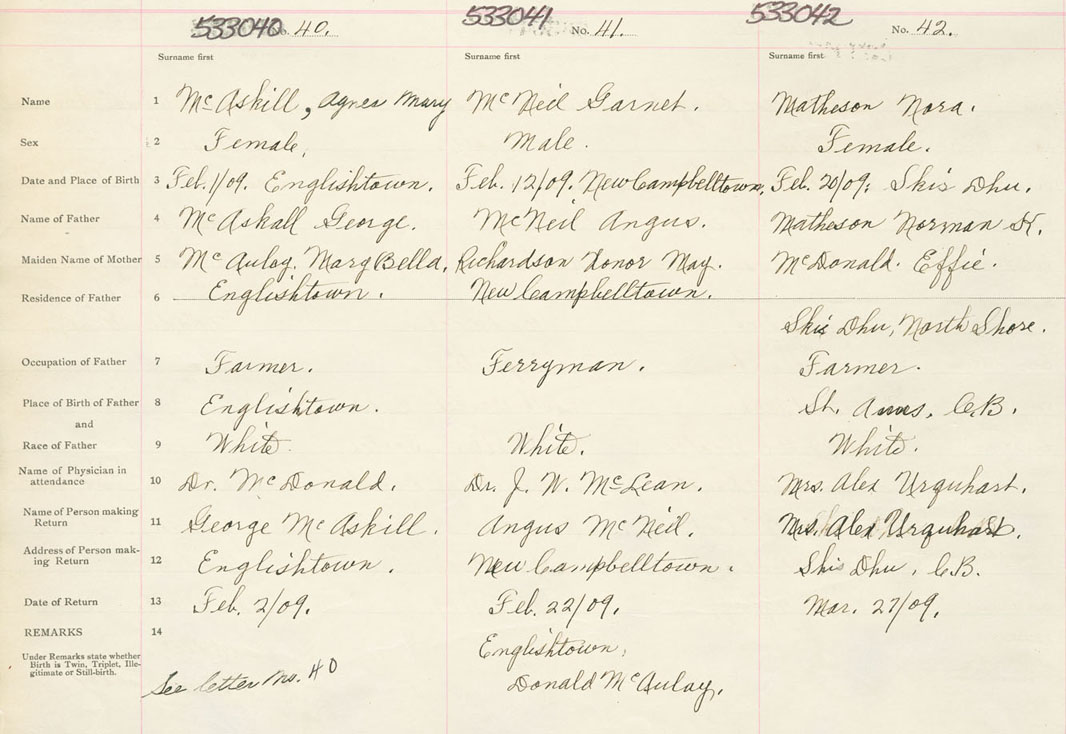 533040 533041 533042
No. 40. No. 41. No. 42.
Surname first Surname first Surname first
Name 1 McAskill, Agnes Mary McNeil Garnet. Matheson Nora.
Sex 2 Female, Male. Female.
Date and Place of Birth 3 Feb. 1/09. Englishtown. Feb. 12/09. New Campbelltown. Feb. 20/09; Skis Dhu.
Name of Father 4 McAskall George. McNeil Angus. Matheson Norman K.
Maiden Name of Mother 5 McAulay. Marg Bella. Richardson Honor May. McDonald. Effie.
Residence of Father 6 Englishtown. New Campbelltown.
Skis Dhu, North Shore.
Occupation of Father 7 Farmer. Ferryman. Farmer.
Place of Birth of Father 8 Englishtown. St. Anns, C.B.
and
Race of Father 9 White. White. White.
Name of Physician in
attendance 10 Dr. McDonald. Dr. J. W. McLean. Mrs. Alex Urquhart.
Name of Person making
Return 11 George McAskill. Angus McNeil. Mrs. Alex Urquhart.
Address of Person mak-
ing Return 12 Englishtown. New Campbelltown. Skis Dhu, C.B.
Date of Return 13 Feb. 2/09. Feb. 22/09. Mar. 27/09.
REMARKS 14
Englishtown,
Under Remarks state whether
Birth is Twin, Triplet, Ille-
gitimate or Still-birth.
See letter No. 40 Donald McAulay.